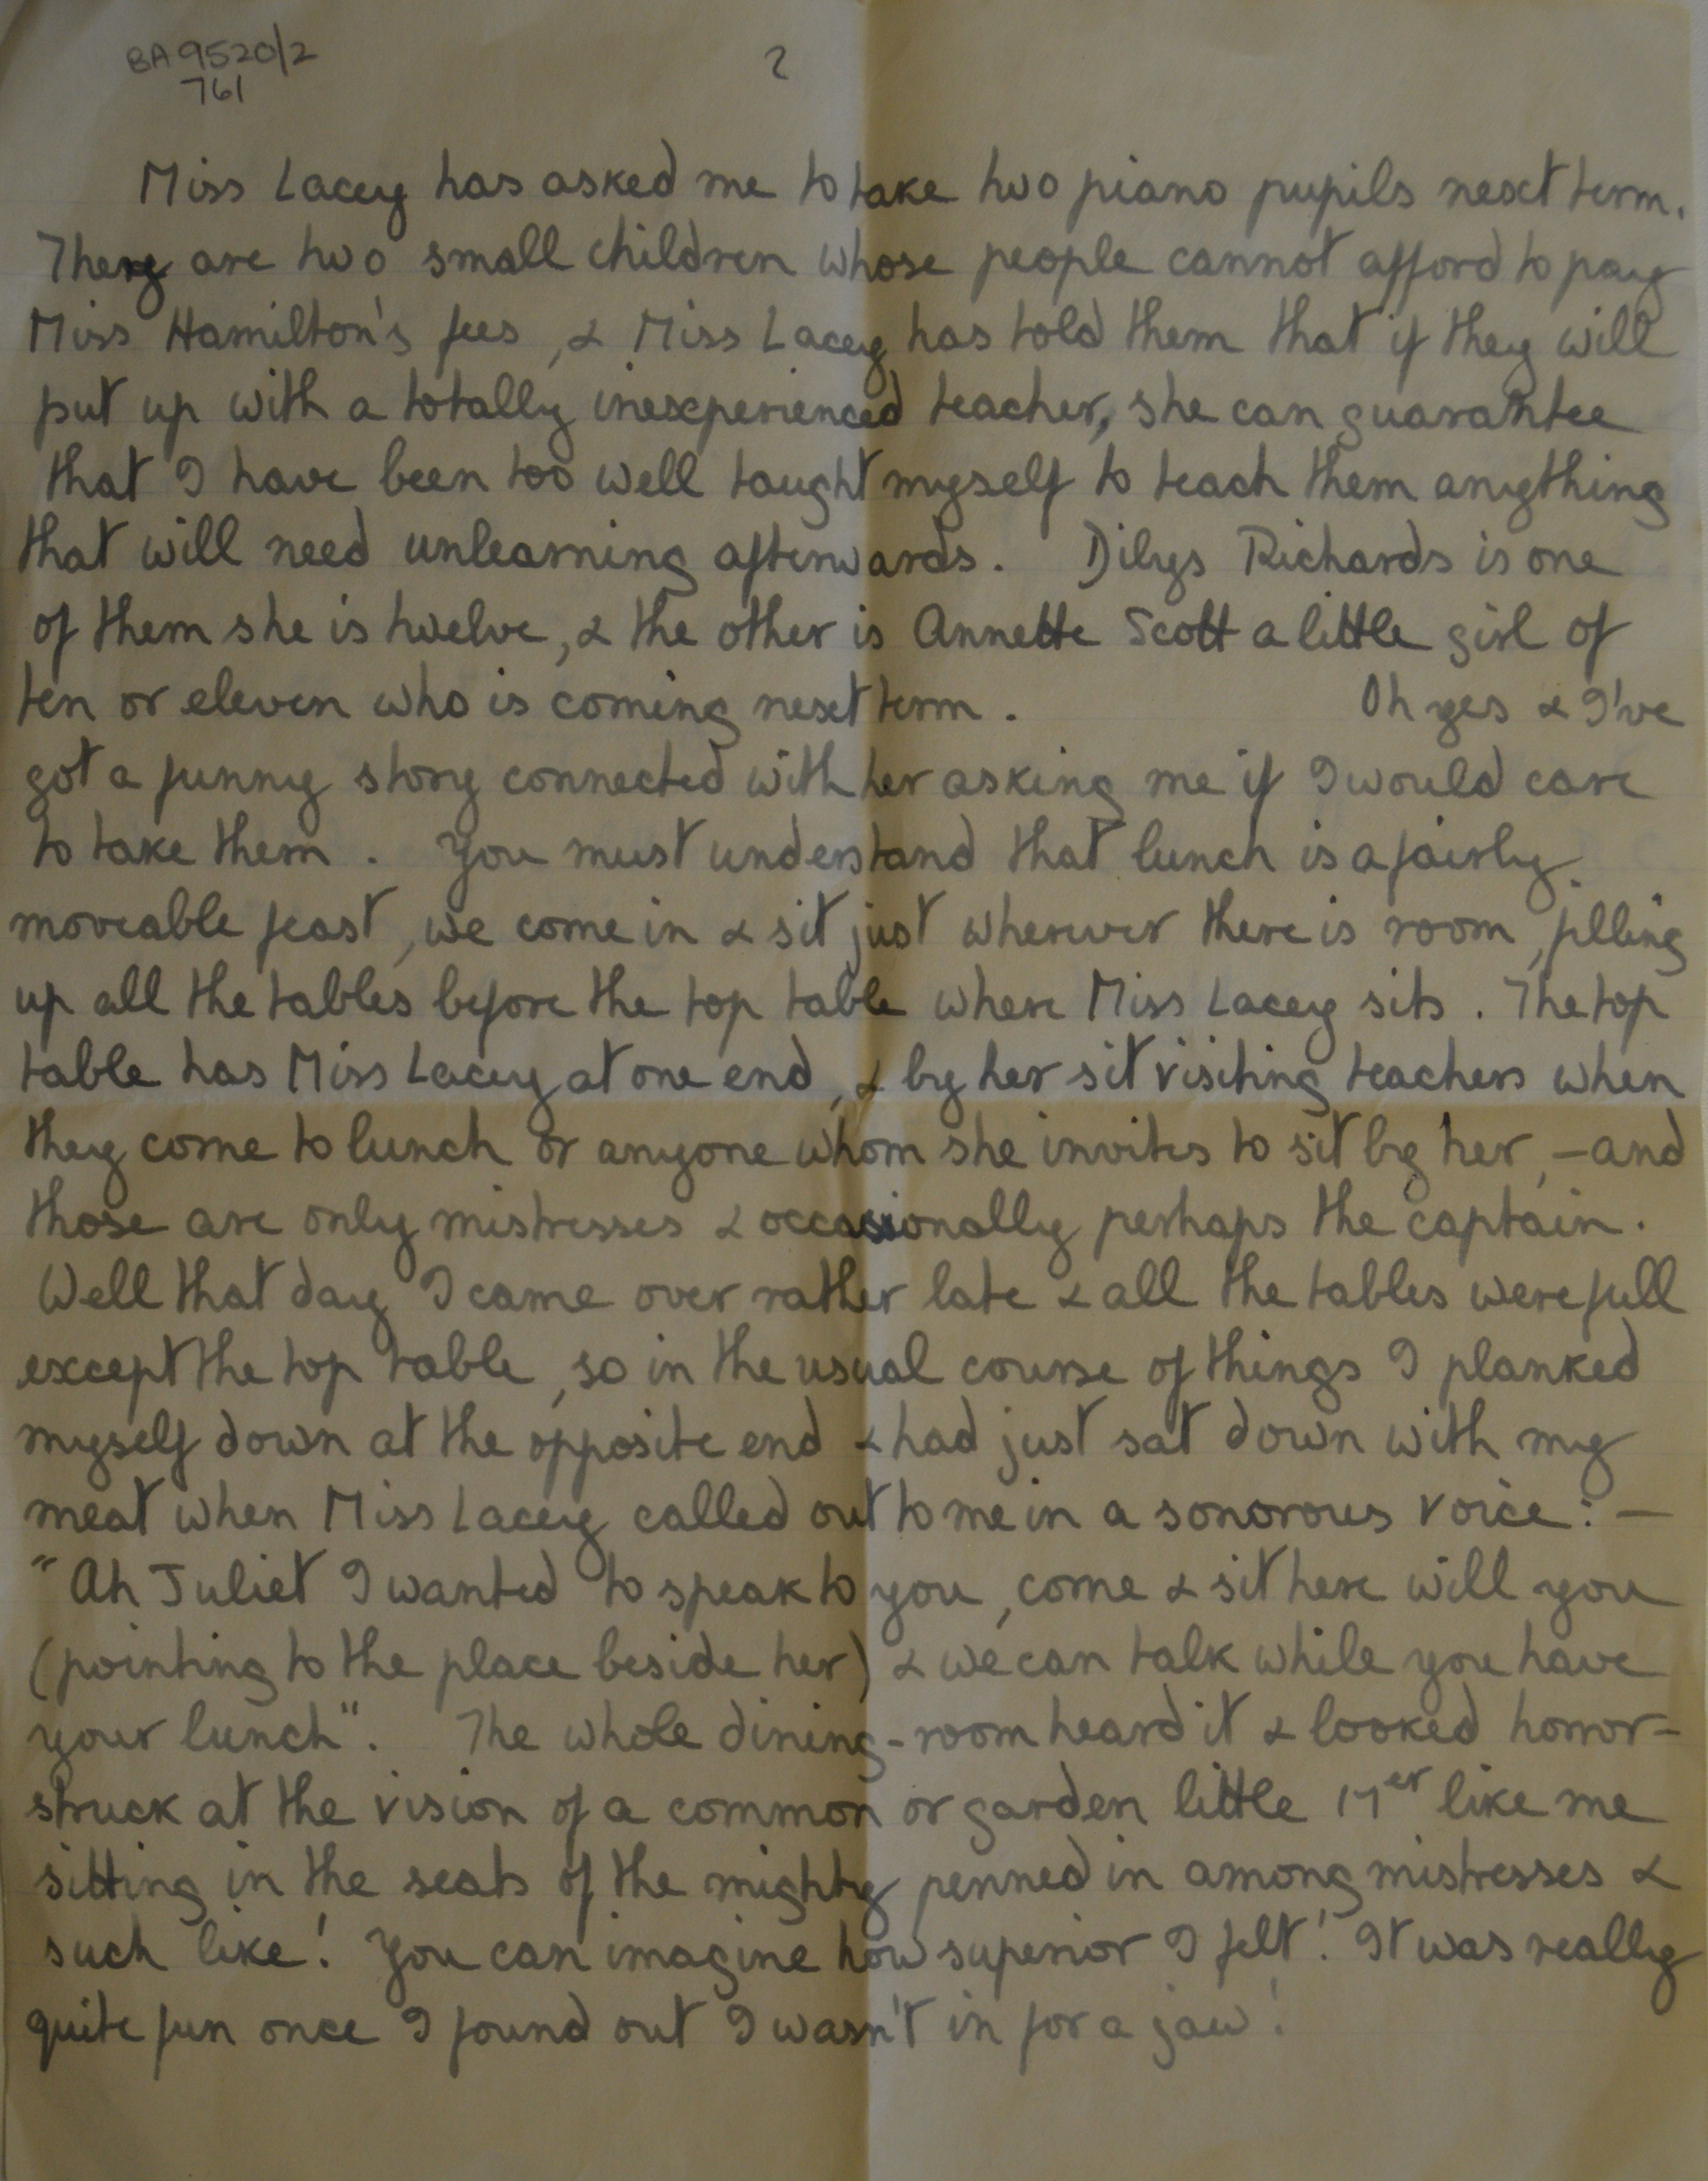 BA 9520/2
761
2
Miss Lacey has asked me to take two piano pupils next term.
They are two small children whose people cannot afford to pay
Miss Hamilton's fees, & Miss Lacey has told them that if they will
put up with a totally inexperienced teacher, she can guarantee
that I have been too well taught myself to teach them anything
that will need unlearning afterwards. Dilys Richards is one
of them she is twelve, & the other is Annette Scott a little girl of
ten or eleven who is coming next term. Oh yes & I've
got a funny story connected with her asking me if I would care
to take them. You must understand that lunch is a fairly
moveable feast, we come in & sit just wherever there is room, filling
up all the tables before the top table where Miss Lacey sits. The top
table has Miss Lacey at one end, & by her sit visiting teachers when
they come to lunch or anyone whom she invites to sit by her, – and
those are only mistresses & occasionally perhaps the captain.
Well that day I came over rather late & all the tables were full
except the top table, so in the usual course of things I planked
myself down at the opposite end & had just sat down with my
meat when Miss Lacey called out to me in a sonorous voice: –
"Ah Juliet I wanted to speak to you, come & sit here will you
(pointing to the place beside her) & we can talk while you have
your lunch". The whole dining-room heard it & looked horror-
struck at the vision of a common or garden little 17er like me
sitting in the seats of the mighty penned in among mistresses &
such like! You can imagine how superior I felt! It was really
quite fun once I found out I wasn't in for a jaw!